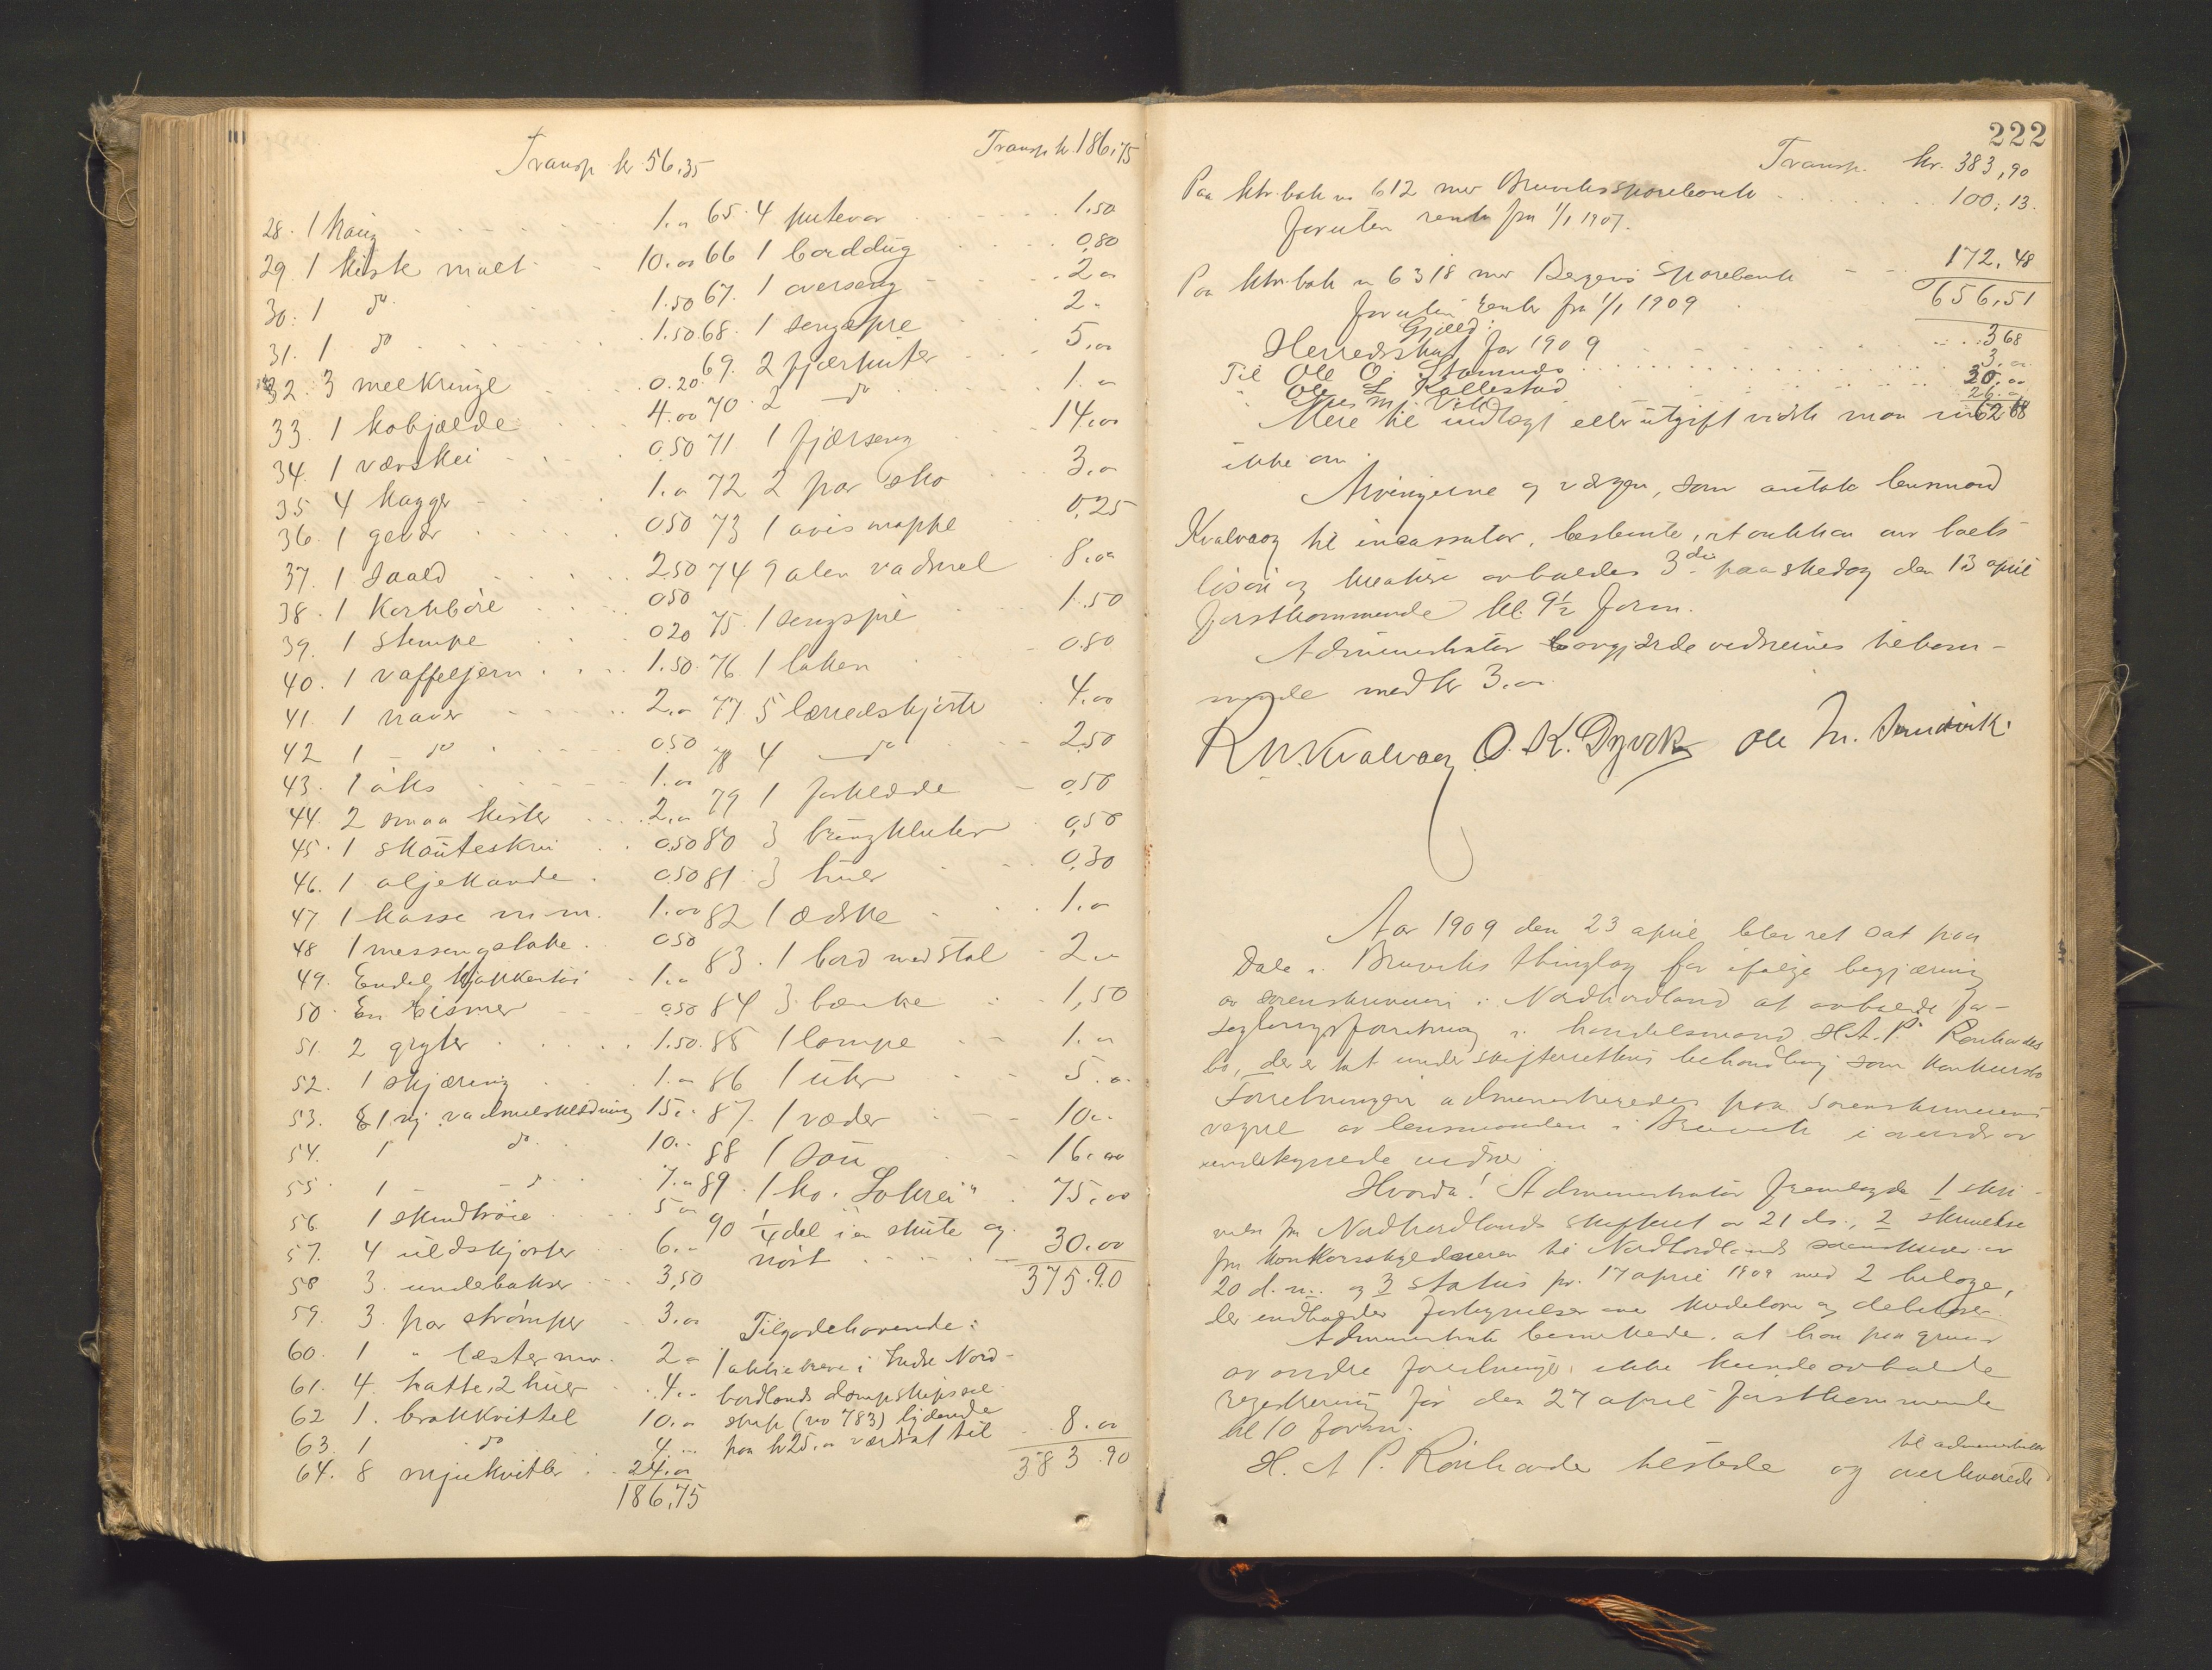 Transp. kr 56,35
28. 1 Kani 1.„
29. 1 kiste malt 10.00
30. 1 do 1.50
31. 1 do 1.50
32. 3 meelkringl 0.20
33. 1 kobjælde 4.00
34. 1 værskei 0.50
35 4 kagger 1.„
36. 1 gevær 0.50
37. 1 saald 2.50
38. 1 Kornbøre 0.50
39. 1 stampe 0.20
40. 1 vaffeljern 1.50
41. 1 naver 2.„
42 1 do 0.50
43. 1 øks 1.00
44. 2 smaa kister 2.„
45. 1 skøuteskrin 0.50
46. 1 oljekande 0.50
47 1 kasse m.m. 1.00
48 1 messingstake 0.50
49. Endel kjøkkentøi 1.„
50. En bismer 0.50
51. 2 gryter 1.50
52. 1 skjæring 1.„
53. 1 ny vadmelsklædning 15.„
54. 1 do 10.„
55 1 do 7.„
56 1 skindtrøie 5.00
57. 4 uldskjorter 6.„
58 3 underbukser 3,50
59. 3 par strømper 3.00
60. 1 „ læster mv. 2.„
61. 4 hatte, 2 huer 4.„
62 1. brokkvittel 10.„
63. 1 do 4.„
64. 8 mjelkvitler 24.„
186,75
Transp kr. 186,75
65. 4 putevar 1.50
66 1 borddug 0.80
67. 1 overseng 2.„
68. 1 sengspre 2.„
69. 2 fjærputer 5.00
70. 2 do 1.„
71 1 fjærseng 14.00
72 2 par sko 3.„
73 1 avismappe 0.25
74 9 alen vadmel 8.00
75. 1 sengspre 1.50
76 1 laken 0.80
77 5 lærredskjorte 4.00
78 4 do 2.50
79 1 forklæde 0.50
80 3 bringkluter 0.50
81 3 huer 0.30
82 1 æske 1.„
83. 1 bord med stol 2.„
84 3 bænke 1,50
85 1 lampe 1.„
86 1 uhr 5.„
87. 1 væder 10.„
88 1 sau 16.00
89. 1 ko „Lokrei“ 75.00
90 1/4 del i en skute og
nøst 30.00
375.90
Tilgodehavende:
1 aktiebrev i Indre Nord-
hordlands dampskipssel-
skap (no 783) lydende
paa kr 25.„ værdsat til 8.00
383.90
222
Transp. kr. 383,90
Paa ktr. bok no 612 mer Bruviks sparebank 100,13.
foruten rente fra 1/1 1907.
Paa ktr. bok no 6318 mer Bergens Sparebank 172,48
foruten renter fra 1/1 1909 656,51
Gjæld:
Herredsskat for 1909 3 68
Til Ole O. Stamnes 3.„
„ Ole L Kallestad 30.„
„ M. Vik 26.„
Mere til indtægt eller utgift vidste man 62 68
ikke om.
Arvingerne og værgen, som antok lensmand
Kvalvaag til incassator, bestemte, at auktion over boets
løsøre og kreatur avholdes 3die paaskedag den 13 april
førstkommende kl. 9½ form.
Administrator borgjorde vidnernes tilkom-
mende med kr 3.„
R. N. Kvalvaag O. K. Dyvik Ole M. Sandvik.
Aar 1909 den 23 april blev ret sat paa
Dale i Bruviks thinglag for ifølge begjæring
av sorenskriveren i Nordhordland at avholde for-
seglingsforretning i handelsmand H. A. P. Rønhovdes
bo, der er tat under skifterettens behandling som konkursbo
Forretningen administreredes paa sorenskriverens
vegne av lensmanden i Bruvik i overvær av
undertegnede vidner.
Hvorda! Administrator fremlagde 1 skri-
velse fra Nordhordlands skifteret av 21 ds., 2 skrivelse
fra konkursskyldneren til Nordhordlands sorenskriver av
20 d. m. og 3 status pr. 17 april 1909 med 2 bilage,
der indholder fortegnelser over kreditorer og debitorer.
Administrator bemerkede, at han paa grund
av andre forretninger ikke kunde avholde
registrering før den 27 april førstkommende
kl 10 form.
H. A P. Rønhovde tilstede og overleverede
til administrator